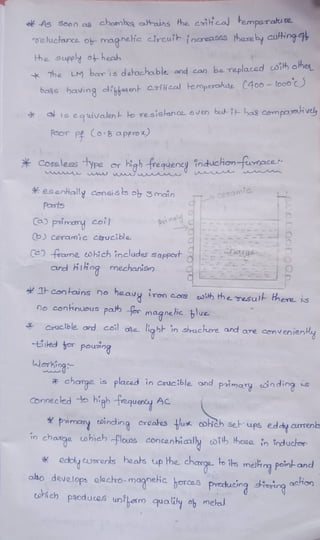 * As soon as chamber attains the critical temperature
reluctance of magnetic circuit increases thereby cutting off
the supply of heat
* The LM bar is detachable and can be replaced with other
bars having different critical temperature (400 - 1000°c)
* It is equivalent to resistance oven but it has comparatively
poor pf (0.8 approx)
* Coreless type or high frequency induction furnace:-
* essentially consists of 3 main
parts
(a) primary coil
(b) ceramic crucible
(c) frame which includes support
and tilting mechanism
ceramic
primary
charge
* It contains no heavy iron core with the result there is
no continuous path for magnetic flux
* crucible and coil are light in structure and are conveniently
tilted for pouring
Working:-
* charge is placed in crucible and primary winding is
connected to high frequency AC
* primary winding creates flux which set ups eddy currents
in charge which flows concentrically with those in inductor
* eddy currents heats up the charge to its melting point and
also develops electro-magnetic forces producing stirring action
which produces uniform quality of metal